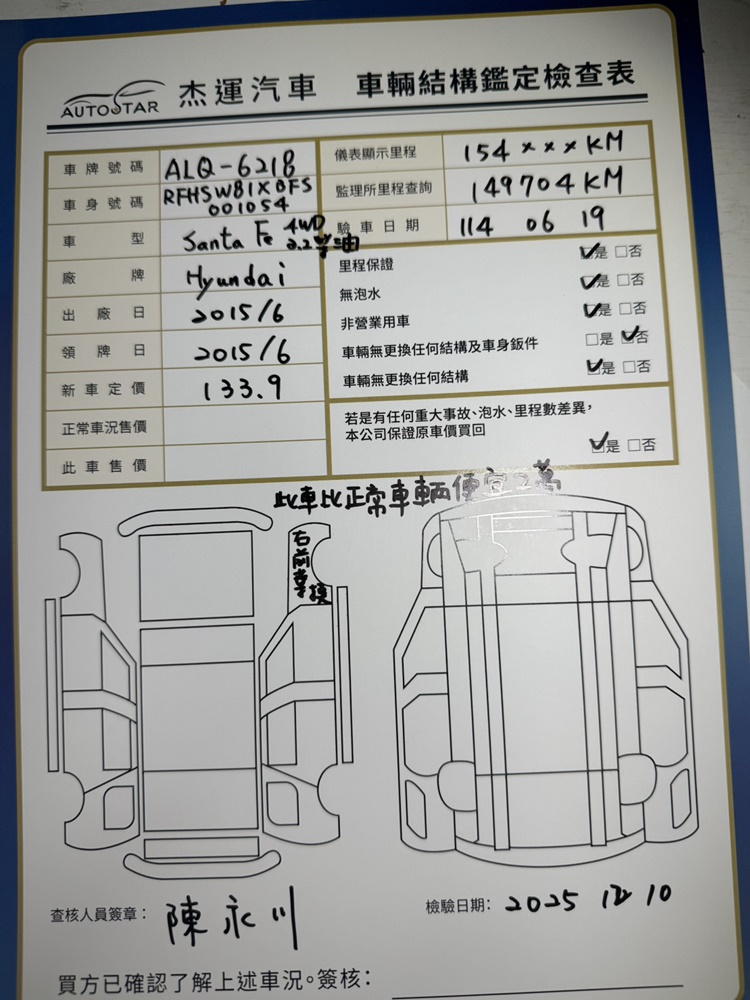 AUTOSTAR 杰運汽車 車輛結構鑑定檢查表
車牌號碼 ALQ-6218
車身號碼 RFHSW81XBFS
001054
車型 Santa Fe 4WD
2.2柴油
廠牌 Hyundai
出廠日 2015/6
領牌日 2015/6
新車定價 133.9
正常車況售價
此車售價
儀表顯示里程 154×××KM
監理所里程查詢 149704KM
驗車日期 114 06 19
里程保證 ☑是 □否
無泡水 ☑是 □否
非營業用車 ☑是 □否
車輛無更換任何結構及車身鈑件 □是 ☑否
車輛無更換任何結構 ☑是 □否
若是有任何重大事故、泡水、里程數差異,
本公司保證原車價買回
☑是 □否
此車比正常車輛便宜2萬
右前葉換
查核人員簽章: 陳永川
檢驗日期: 2025 12 10
買方已確認了解上述車況。簽核: